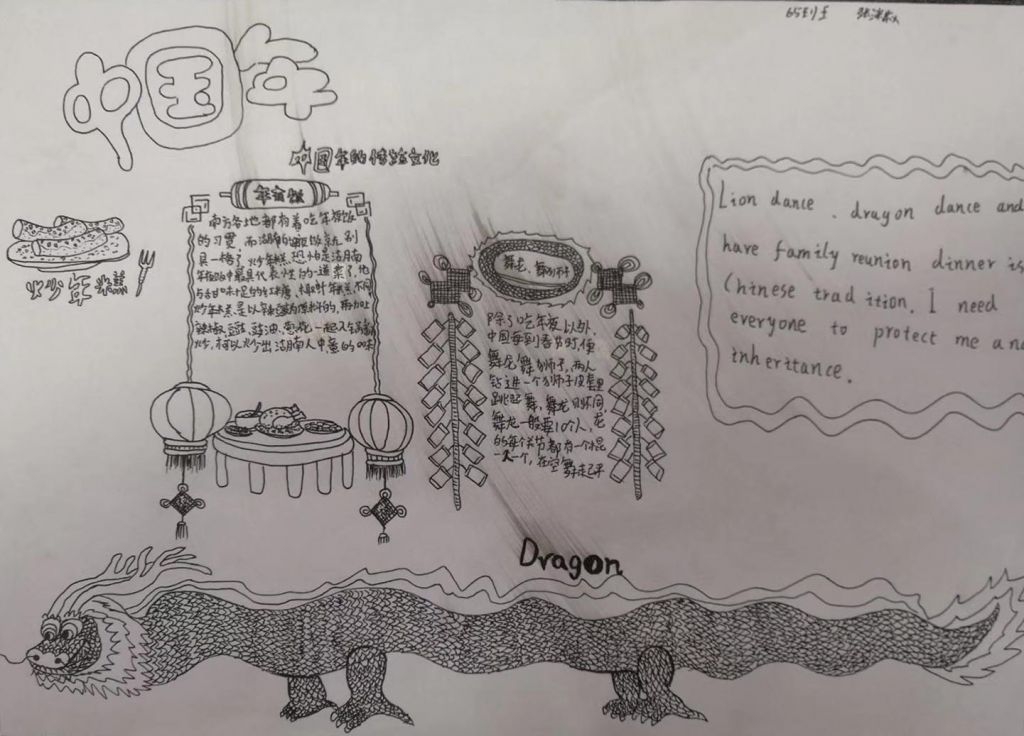 中国年
中国年的传统文化
年夜饭
南方各地都有着吃年夜饭
的习惯，而湖南的年夜饭就别
具一格了，炒年糕恐怕是湖南
年夜饭中最具代表性的一道菜了，他
与甜味十足的红糖
炒年糕是以辣
辣椒、豆豉、豉油、葱花一起入锅
炒，可以炒出湖南人中意的口味
炒年糕
舞龙、舞狮
除了吃年夜以外，
中国每到春节时便
舞龙舞狮子，两人
钻进一个狮子皮套里
跳起舞，舞龙则不同，
舞龙一般要10个人，龙
的每个关节都有一个棍
一人一个，在空舞起平
Lion dance 、dragon dance and
have family reunion dinner is
Chinese tradition. I need
everyone to protect me an
inheritance.
Dragon